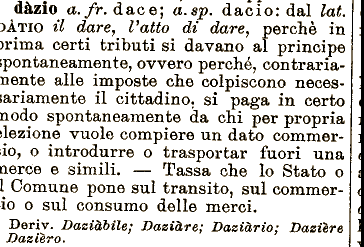 dàzio a. fr. dace; a. sp. dacio: dal lat.
DÀTIO il dare, l'atto di dare, perchè in
prima certi tributi si davano al principe
spontaneamente, ovvero perché, contraria-
mente alle imposte che colpiscono neces-
sariamente il cittadino, si paga in certo
modo spontaneamente da chi per propria
elezione vuole compiere un dato commer-
cio, o introdurre o trasportar fuori una
merce e simili. — Tassa che lo Stato o
il Comune pone sul transito, sul commer-
cio o sul consumo delle merci.
Deriv. Daziàbile; Daziàre; Daziàrio; Dazière
Dazièro.